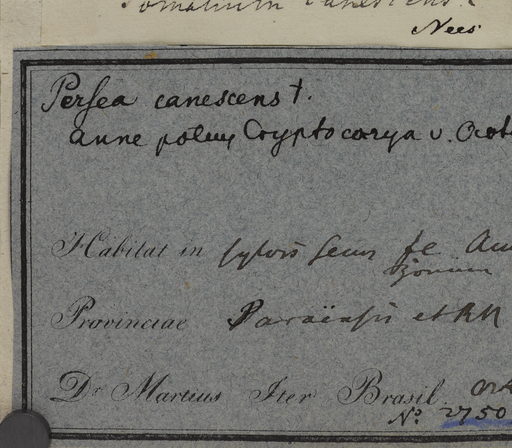 canescens.
Nees
Persea canescens †.
anne potius Cryptocarya v.
Habitat in sylvis secus fl. Am
azonum
Provinciae Paraënsis et R N
Dr. Martius Iter Brasil.
No. 2750